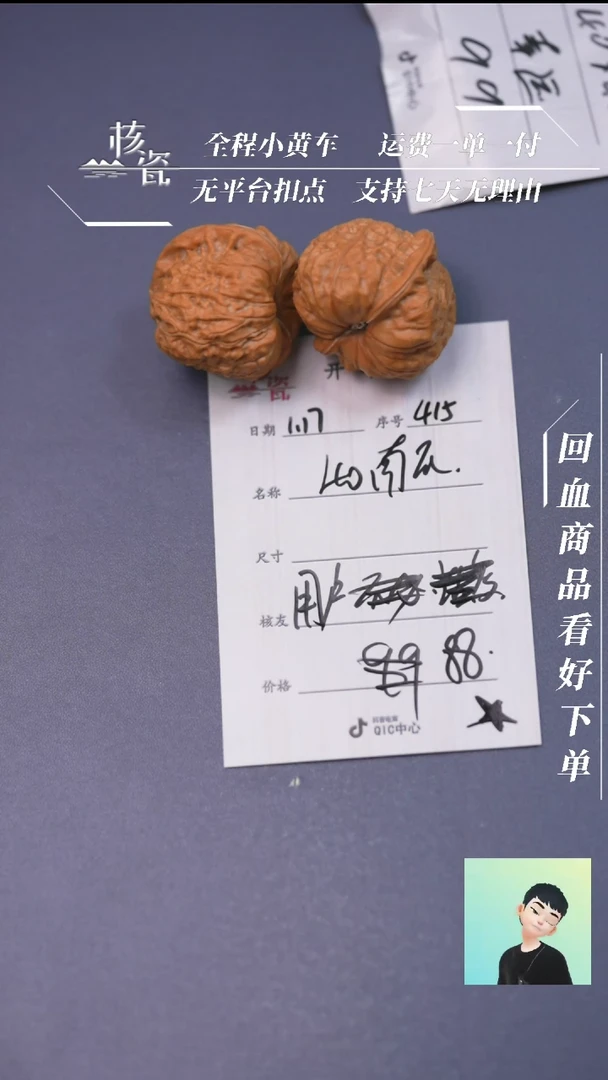 99
核瓷
全程小黄车 运费一单一付
无平台扣点 支持七天无理由
开
瓷
日期 1.17 序号 415
名称 南瓜.
尺寸
核友 用户
价格 99 88.
抖音电商
QIC中心
回血商品看好下单